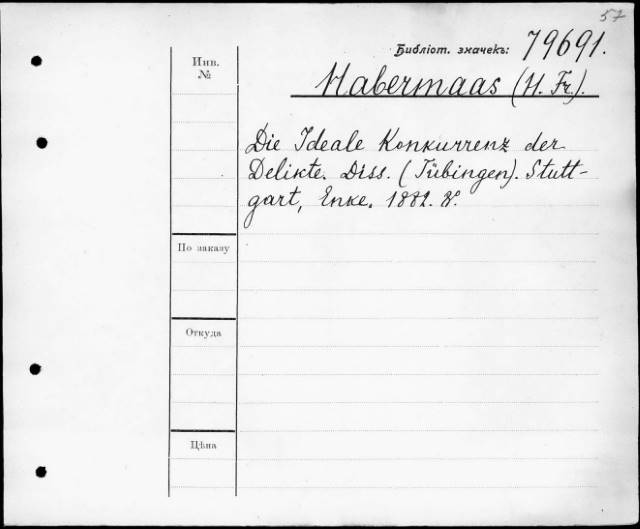 57
Библіот. значекъ: 79691.
Инв.
№
Habermaas (H. Fr.).
Die Ideale Konkurrenz der
Delikte. Diss. (Tübingen). Stutt-
gart, Enke. 1882. 8°.
По заказу
Откуда
Цѣна